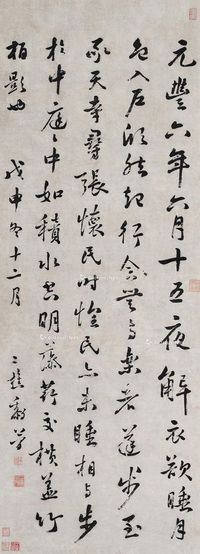 元豐六年六月十五夜解衣欲睡月
色入戶欣然起行念無与樂者遂步至
承天寺尋張懷民時懷民亦未睡相与步
於中庭〻中如積水空明藻荇交橫蓋竹
柏影也 戊申冬十二月 二樵